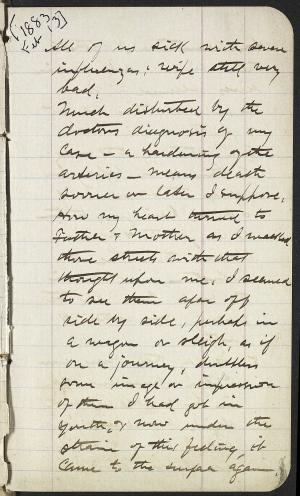 [1883
Feb 13]
All of us sick with severe
influenzas; wife still very
bad.
Much disturbed by the
doctors diagnosis of my
case - a hardening of the
arteries - means death
sooner or later I suppose.
How my heart turned to
Father & Mother as I walked
those streets with that
thought upon me. I seemed
to see them afar off
side by side, perhaps in
a wagon or sleigh, as if
on a journey, doubtless
some image or impression
of them I had got in
youth, & now under the
strain of this feeling, it
came to the surface again.